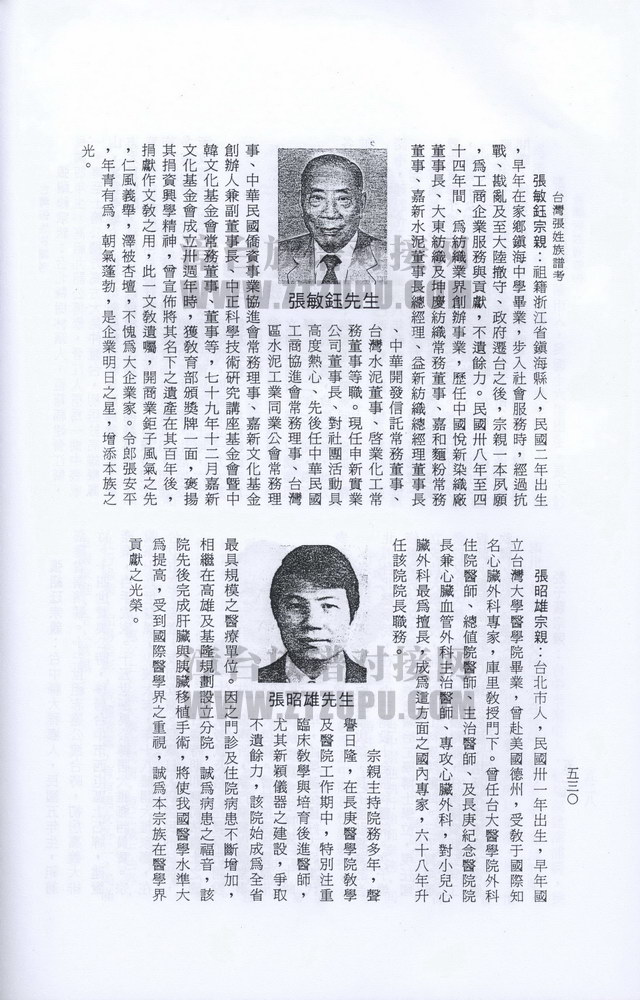 台灣張姓族譜考
五三〇
張敏鈺宗親：祖籍浙江省鎮海縣人，民國二年出生
，早年在家鄉鎮海中學畢業，步入社會服務時，經過抗
戰、戡亂及至大陸撤守、政府遷台之後，宗親一本夙願
，爲工商企業服務與貢獻，不遺餘力。民國卅八年至四
十四年間、爲紡織業界創辦事業，歷任中國悅新染織廠
董事長、大東紡織及坤慶紡織常務董事、嘉和麵粉常務
董事、嘉新水泥董事長總經理、益新紡織總經理董事長
、中華開發信託常務董事、
台灣水泥董事、啓業化工常
務董事等職。現任申新實業
公司董事長、對社團活動具
高度熱心、先後任中華民國
工商協進會常務理事、台灣
區水泥工業同業公會常務理
張敏鈺先生
事、中華民國僑資事業協進會常務理事、嘉新文化基金
創辦人兼副董事長、中正科學技術研究講座基金會暨中
韓文化基金會常務董事、董事等，七十九年十二月嘉新
文化基金會成立卅週年時，獲敎育部頒奬牌一面，褒揚
其捐資興學精神，曾宣佈將其名下之遺產在其百年後，
捐獻作文敎之用，此一文敎遺囑，開商業鉅子風氣之先
，仁風義舉，澤被杏壇，不愧爲大企業家。令郎張安平
，年青有爲，朝氣蓬勃，是企業明日之星，增添本族之
光。
張昭雄宗親：台北市人，民國卅一年出生，早年國
立台灣大學醫學院畢業，曾赴美國德州，受敎于國際知
名心臟外科專家，庫里敎授門下。曾任台大醫學院外科
住院醫師、總値院醫師、主治醫師、及長庚紀念醫院院
長兼心臟血管外科主治醫師、專攻心臟外科，對小兒心
臟外科最爲擅長，成爲這方面之國內專家，六十八年升
任該院院長職務。
宗親主持院務多年，聲
譽日隆，在長庚醫學院敎學
及醫院工作期中，特別注重
臨床敎學與培育後進醫師，
尤其新穎儀器之建設，爭取
不遺餘力，該院始成爲全省
張昭雄先生
最具規模之醫療單位。因之門診及住院病患不斷增加，
相繼在高雄及基隆規劃設立分院，誠爲病患之福音，該
院先後完成肝臟與胰臟移植手術，將使我國醫學水準大
爲提高，受到國際醫學界之重視，誠爲本宗族在醫學界
貢獻之光榮。
WWW.ZTZUPU.COM
WWW.ZTZUPU.COM